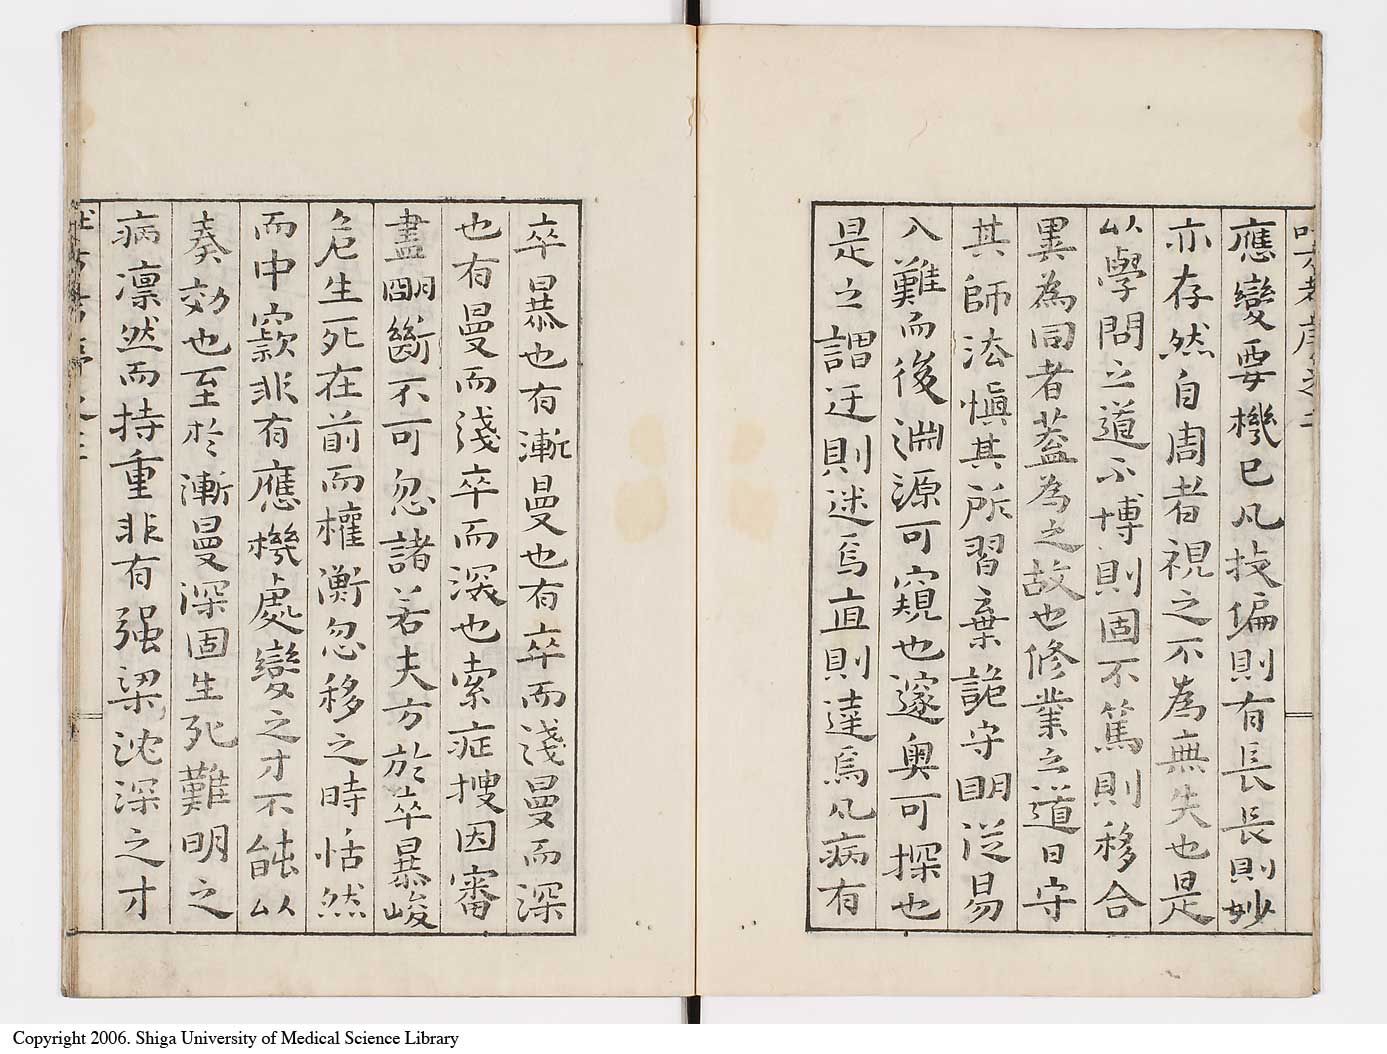 應變要機已凡技偏則有長長則妙
亦存然自周者視之不為無失也是
以學問之道不博則固不篤則移合
異為同者葢為之故也修業之道曰守
其師法愼其所習棄詭守眀從易
入難而後淵源可窺也邃奧可探也
是之謂迂則迷焉直則達焉凡病有
卒暴也有漸曼也有卒而淺曼而深
也有曼而淺卒而深也索症搜因審
盡朙斷不可忽諸若夫方於卒暴峻
危生死在前而權衡忽移之時恬然
而中窾非有應機處變之才不能以
奏効也至於漸曼深固生死難明之
病凛然而持重非有强梁沈深之才
Copyright 2006. Shiga University of Medical Science Library